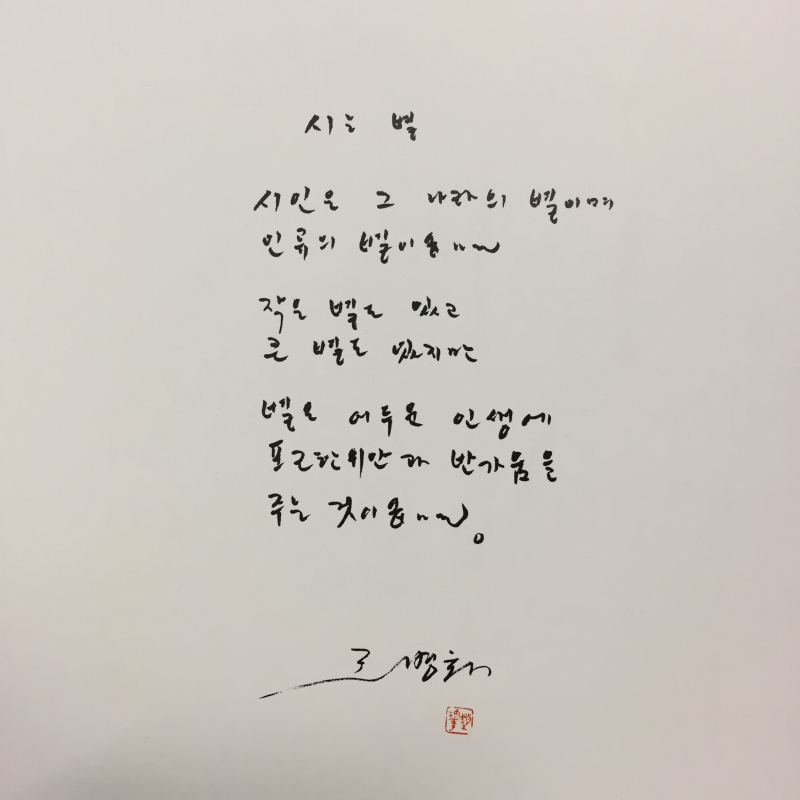 시는 별
시인은 그 나라의 별이며
인류의 별이옵니다
작은 별도 있고
큰 별도 있지만
별은 어두운 인생에
포근한 위안과 반가움을
주는 것이옵니다。
조병화